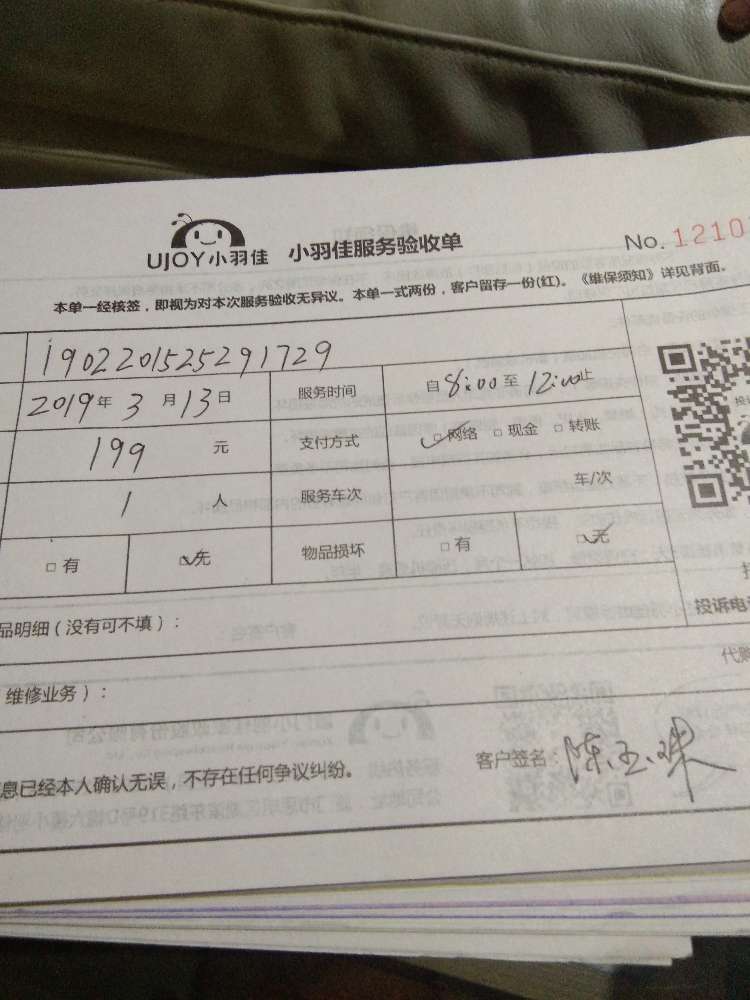 UJOY小羽佳 小羽佳服务验收单 No. 1210
本单一经核签，即视为对本次服务验收无异议。本单一式两份，客户留存一份(红)。《维保须知》详见背面。
1902201525291729
2019年3月13日 服务时间 自8:00至12:00止
199元 支付方式 ☑网络 □现金 □转账
1人 服务车次 车/次
□有 ☑无 物品损坏 □有 ☑无
品明细（没有可不填）：
投诉电
代购
维修业务）：
息已经本人确认无误，不存在任何争议纠纷。 客户签名：陈玉珠